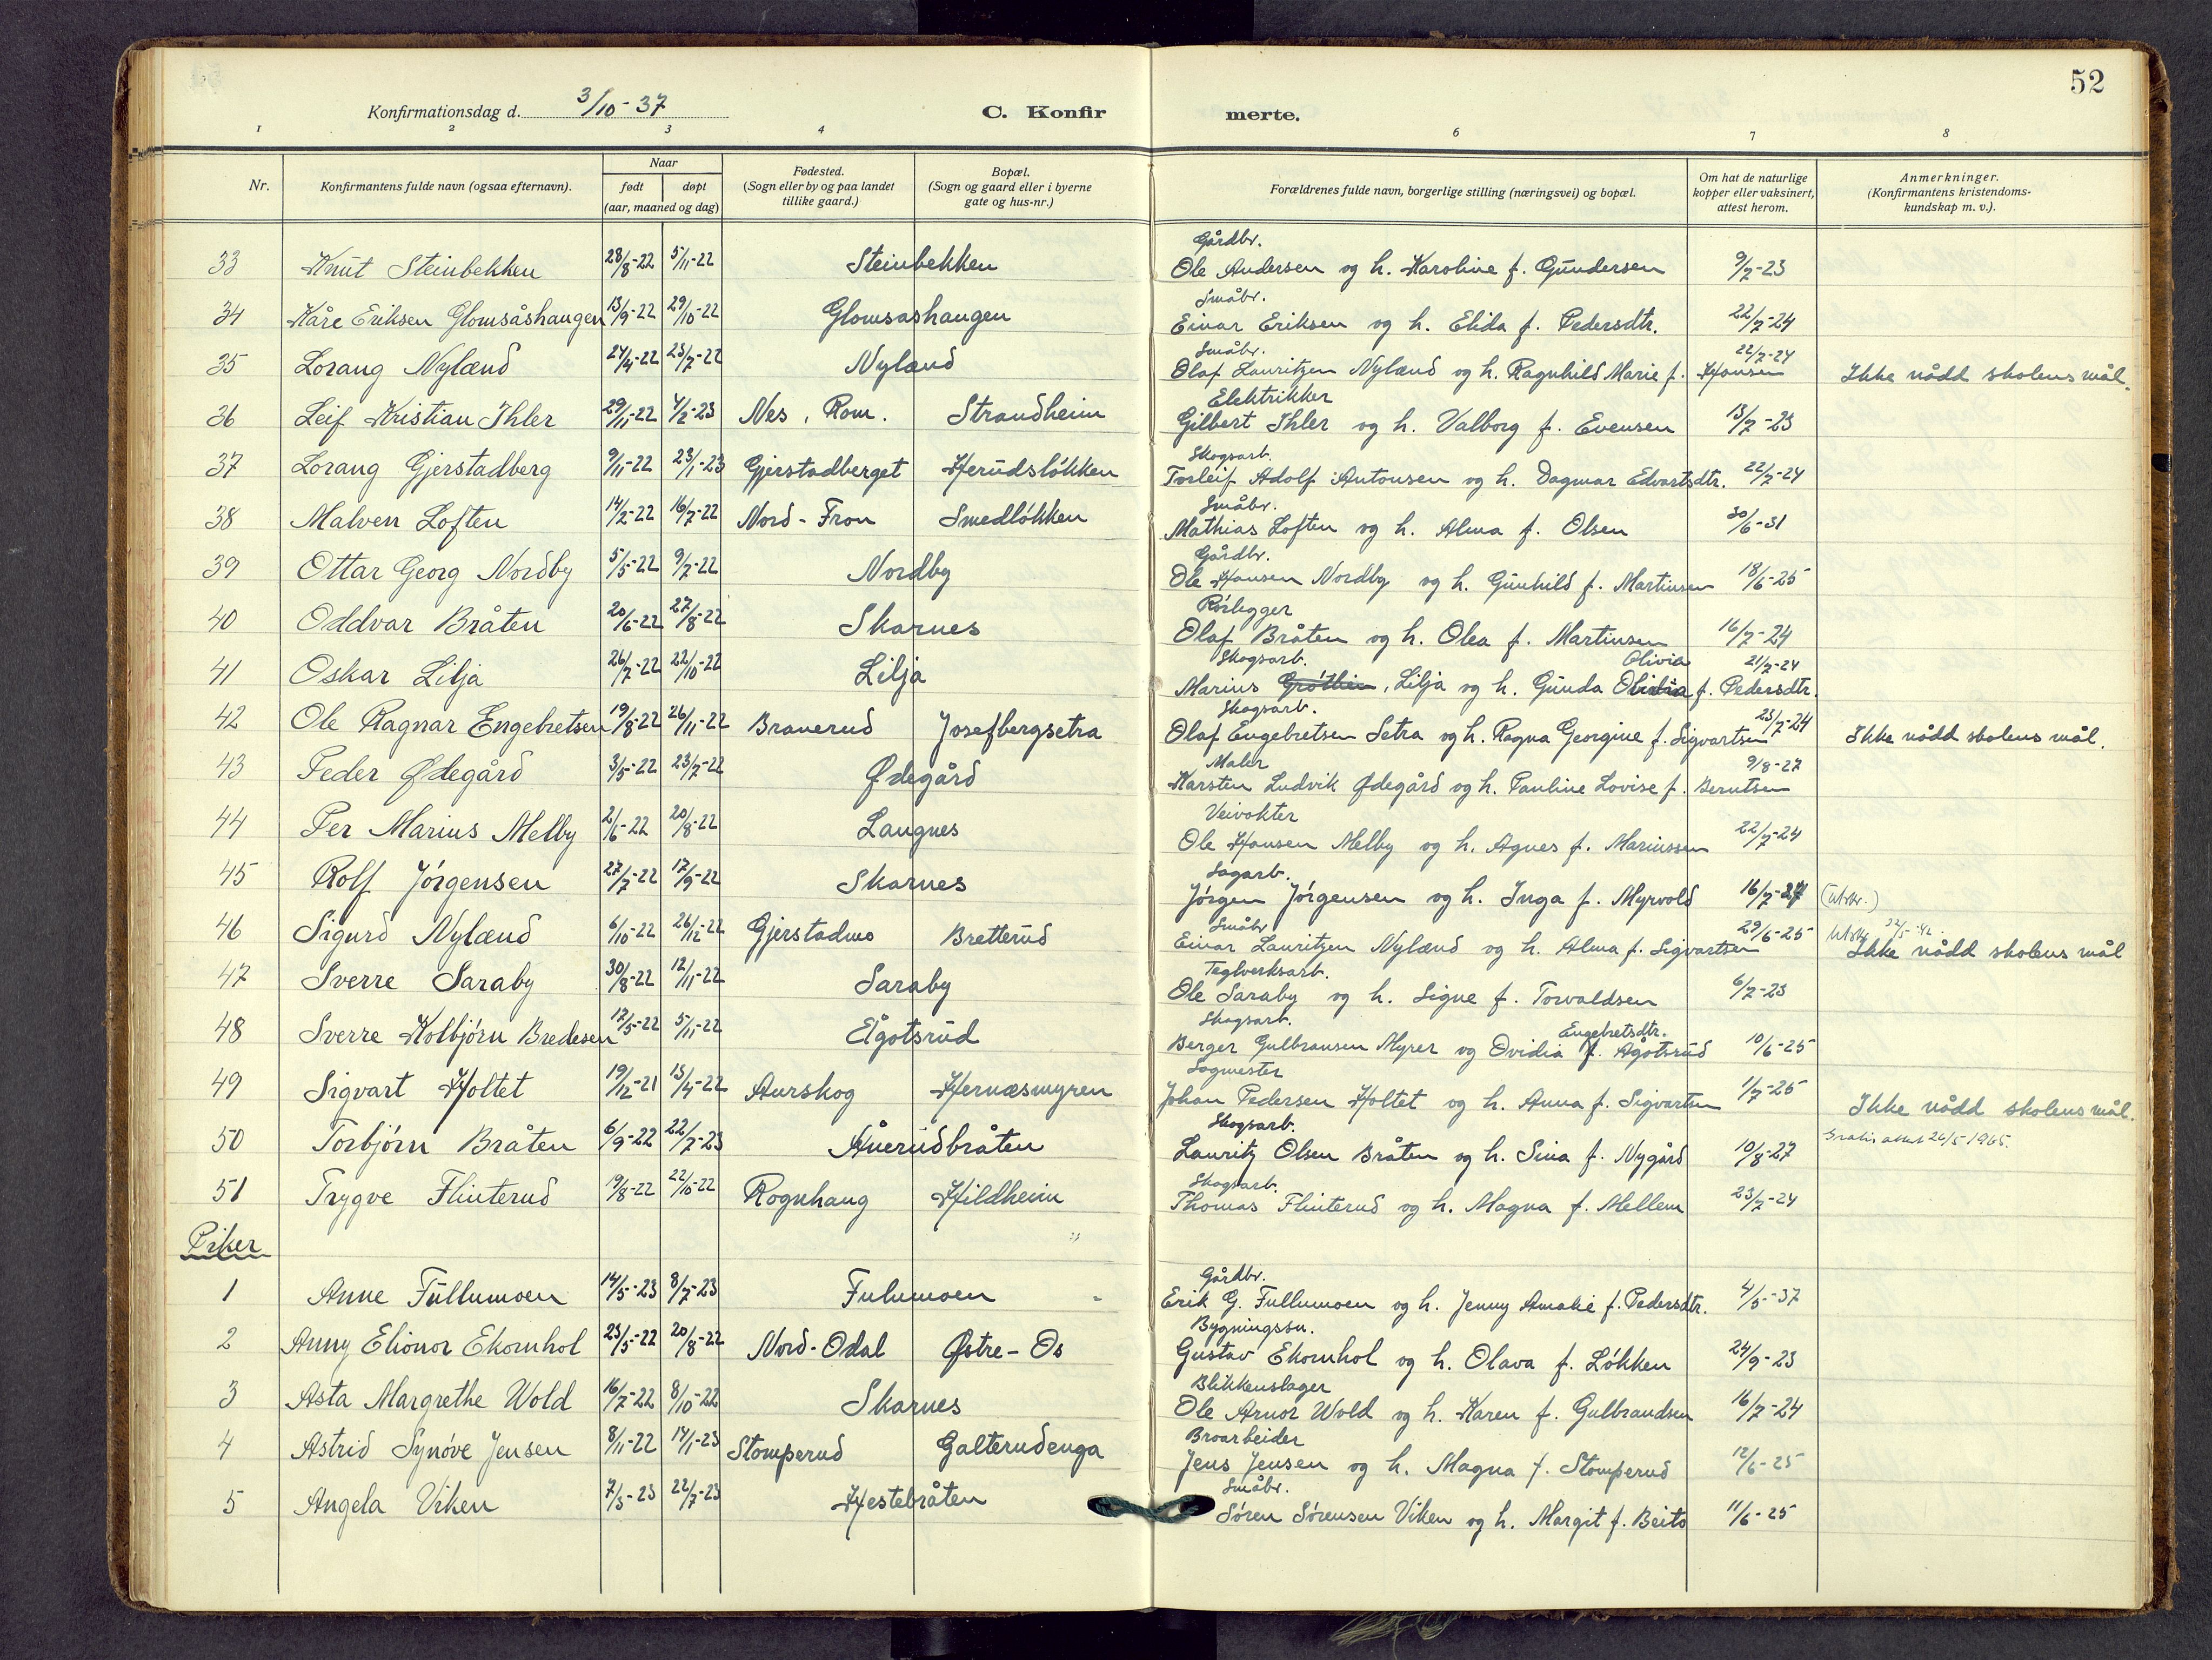 52
Konfirmationsdag d. 3/10-37
C. Konfir merte.
1 2 3 4 6 7 8
Nr.
Konfirmantens fulde navn (ogsaa efternavn).
Naar
født døpt
(aar, maaned og dag)
Fødested.
(Sogn eller by og paa landet
tillike gaard.)
Bopæl.
(Sogn og gaard eller i byerne
gate og hus-nr.)
Forældrenes fulde navn, borgerlige stilling (næringsvei) og bopæl.
Om hat de naturlige
kopper eller vaksinert,
attest herom.
Anmerkninger.
(Konfirmantens kristendoms-
kundskap m. v.).
Gårdbr.
33 Knut Steinbekken 28/8-22 5/11-22 Steinbekken Ole Andersen og h. Karoline f. Gundersen 9/7-23
Småbr.
34 Kåre Eriksen Glomsåshaugen 13/9-22 29/10-22 Glomsashaugen Einar Eriksen og h. Elida f. Pedersdtr. 22/7-24
Småbr.
35 Lorang Nylænd 24/4-22 23/7-22 Nylænd Olaf Lauritzen Nylænd og h. Ragnhild Marie f. Hansen 22/7-24 Ikke nådd skolens mål.
Elektrikker
36 Leif Kristian Ihler 29/11-22 4/2-23 Nes, Rom. Strandheim Gilbert Ihler og h. Valborg f. Evensen 13/7-23
Skogsarb.
37 Lorang Gjerstadberg 9/11-22 23/1-23 Gjerstadberget Herudsløkken Torleif Adolf Antonsen og h. Dagmar Edvartsdtr. 22/7-24
Småbr.
38 Malven Loften 14/2-22 16/7-22 Nord-Fron Smedløkken Mathias Loften og h. Alma f. Olsen 30/6-31
Gårdbr.
39 Ottar Georg Nordby 5/5-22 9/7-22 Nordby Ole Hansen Nordby og h. Gunhild f. Martinsen 18/6-25
Rørlegger
40 Oddvar Bråten 20/6-22 27/8-22 Skarnes Olaf Bråten og h. Olea f. Martinsen 16/7-24
Skogsarb. Olivia
41 Oskar Lilja 26/7-22 22/10-22 Lilja Marius Lilja og h. Gunda f. Pedersdtr. 21/7-24
Skogsarb.
42 Ole Ragnar Engebretsen 19/8-22 26/11-22 Branerud Josefbergsetra Olaf Engebretsen Setra og h. Ragna Georgine f. Sigvartsen 23/7-24 Ikke nådd skolens mål.
Maler
43 Peder Ødegård 3/5-22 23/7-22 Ødegård Karsten Ludvik Ødegård og h. Pauline Lovise f. Berntsen 9/8-27
Veivokter
44 Per Marius Melby 2/6-22 20/8-22 Langnes Ole Hansen Melby og h. Agnes f. Mariussen 22/7-24
Sagarb.
45 Rolf Jørgensen 27/7-22 17/9-22 Skarnes Jørgen Jørgensen og h. Inga f. Myrvold 16/7-24 (Utskr.)
Småbr 22/5-42
46 Sigurd Nylænd 6/10-22 26/12-22 Gjerstadmo Bretterud Einar Lauritzen Nylænd og h. Alma f. Sigvartsen 29/6-25 Utskr. Ikke nådd skolens mål
Teglverksarb.
47 Sverre Saraby 30/8-22 12/11-22 Saraby Ole Saraby og h. Signe f. Torvaldsen 6/7-23
Skogsarb. Engebretsdtr.
48 Sverre Kolbjørn Bredesen 17/5-22 5/11-22 Ågotsrud Berger Gulbransen Myrer og Ovidia f. Agotsrud 10/6-25
Sagmester
49 Sigvart Holtet 19/12-21 15/4-22 Aurskog Hernæsmyren Johan Pedersen Holtet og h. Anna f. Sigvartsen 1/7-25 Ikke nådd skolens mål.
Skogsarb. Gratis attest 26/5 1965.
50 Torbjørn Bråten 6/9-22 22/7-23 Åuerudbråten Lauritz Olsen Bråten og h. Sina f. Nygård 10/8-27
Skogsarb.
51 Trygve Flinterud 19/8-22 22/10-22 Rognhaug Hildheim Thomas Flinterud og h. Magna f. Mellem 23/7-24
Piker
Gårdbr.
1 Anne Füllumoen 14/5-23 8/7-23 Fulumoen Erik G. Fullumoen og h. Jenny Amalie f. Pedersdtr. 4/5-37
Bygningssn.
2 Anny Elionor Ekornhol 23/5-22 20/8-22 Nord-Odal Østre-Os Gustav Ekornhol og h. Olava f. Løkken 24/9-23
Blikkenslager
3 Asta Margrethe Wold 16/7-22 8/10-22 Skarnes Ole Arnor Wold og h. Karen f. Gulbrandsen 16/7-24
Broarbeider
4 Astrid Synøve Jensen 8/11-22 14/1-23 Stomperud Galterudenga Jens Jensen og h. Magna f. Stomperud 12/6-25
Småbr.
5 Angela Viken 7/3-23 22/7-23 Hestebråten Søren Sørensen Viken og h. Margit f. Beito 11/6-25